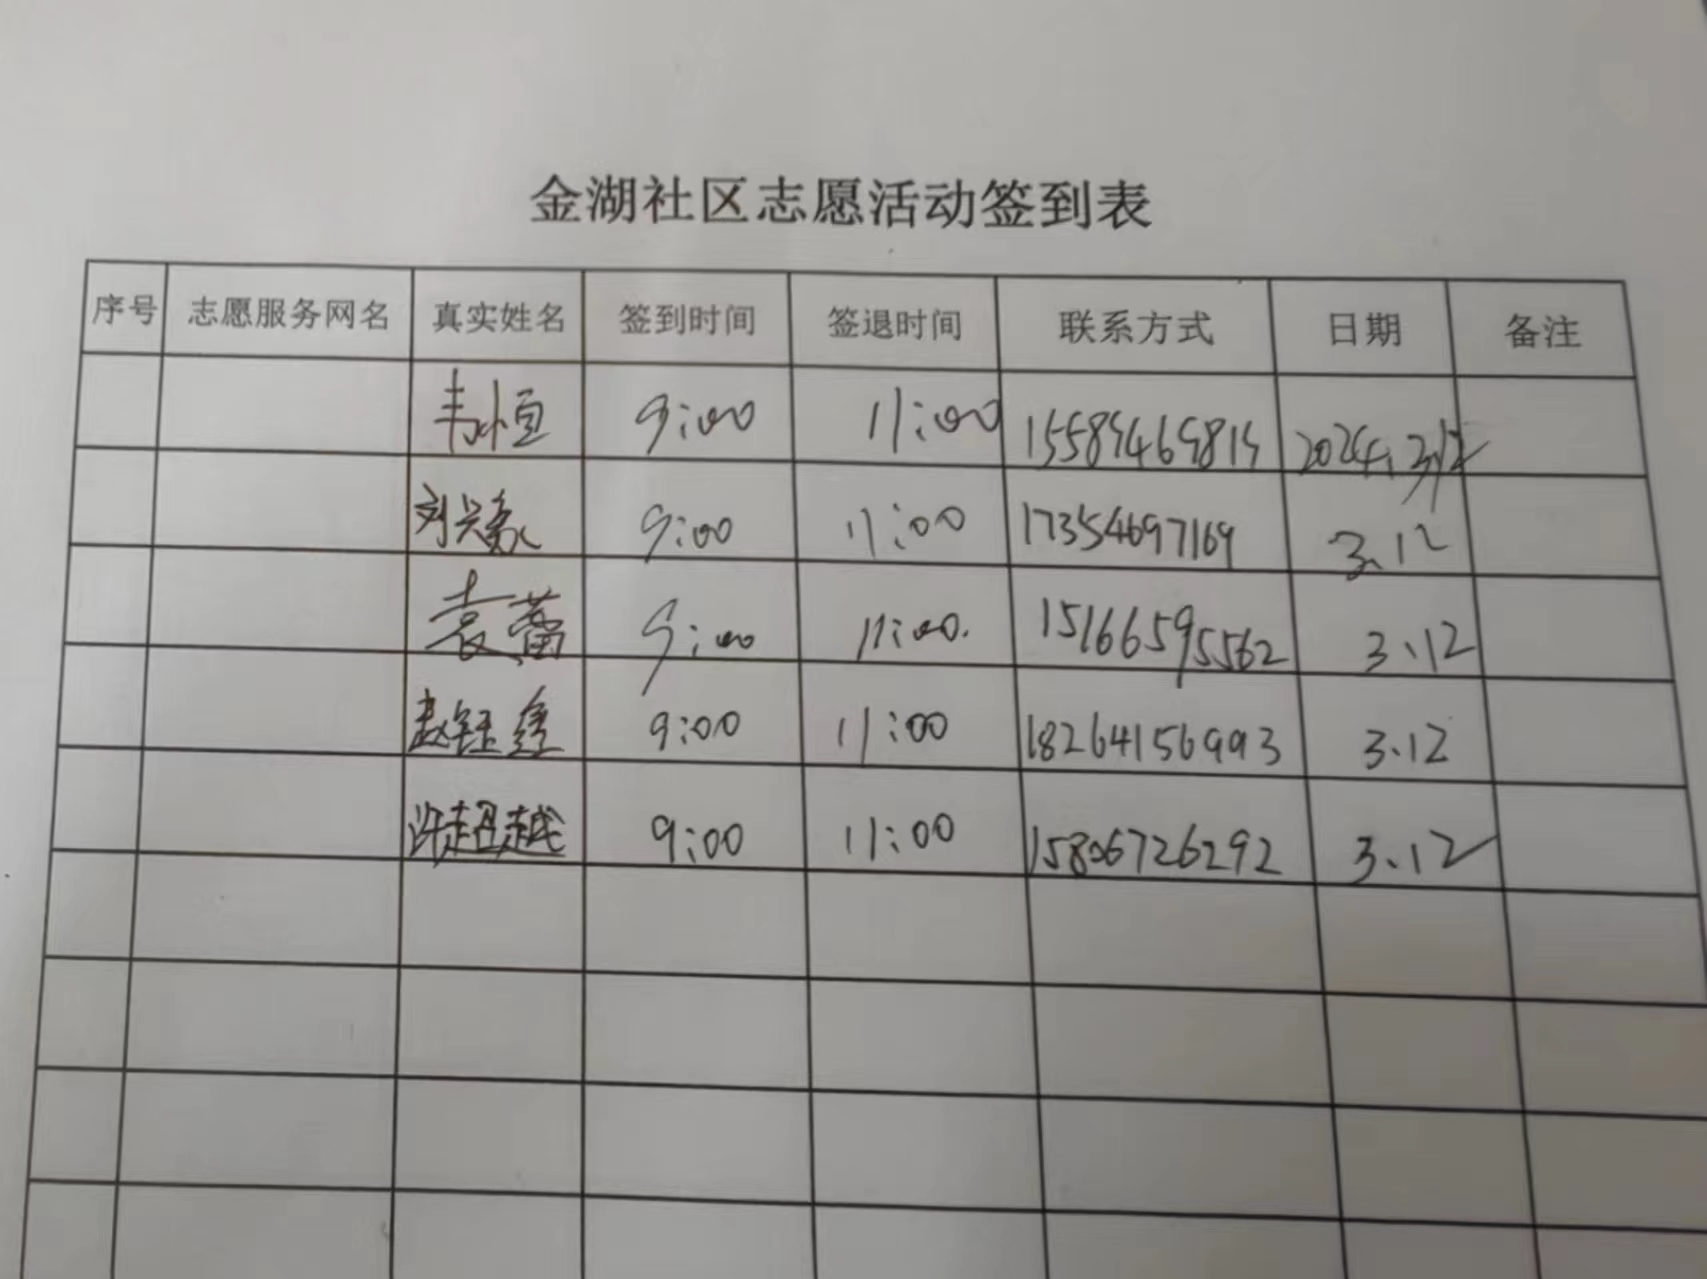 金湖社区志愿活动签到表
序号 志愿服务网名 真实姓名 签到时间 签退时间 联系方式 日期 备注
韦恒 9:00 11:00 2024.3.12
刘兴 9:00 11:00 17354697169 3.12
袁蕾 9:00 11:00. 15166595562 3.12
赵钰 9:00 11:00 18264156993 3.12
许超越 9:00 11:00 15806726292 3.12